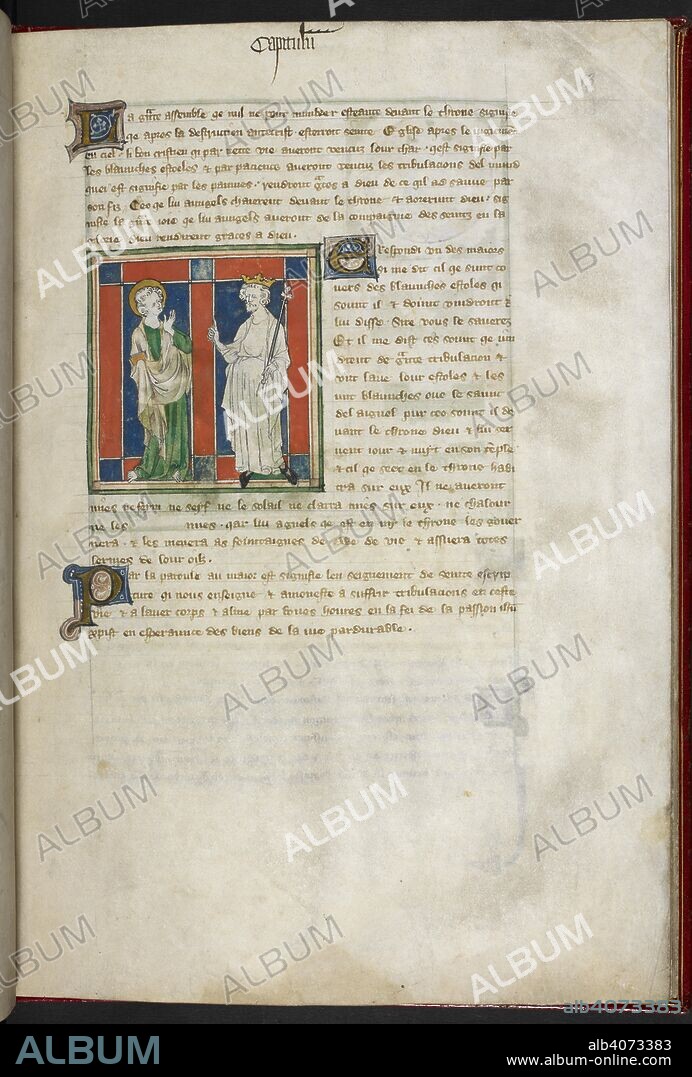 Capitulu
La gñte assemble qe nul ne pout numbder esteante deuant le throne signifie
qe apres la destruccien antecrist esterroit seinte Eglise apres le iugement
en ciel. li bon cristien qi par nette vie aueront vencuz lour char. qest signifie par
les blaunches estoles & par pacience aueront vencuz les tribulacions del mund
quei est signifie par les paumes. rendront gces a dieu de ce qil ad sauue par
son fiz. Ceo qe lui aungels chaierent deuant le throne & aorerunt dieu. sig
nifie la gnt ioie qe lui aungels aueront de la compaignie des seintz en la
glorie dieu rendirent graces a dieu.
E respondi vn des maiors
qi me dit cil qe sunt co
uers des blaunches estoles qi
sount il & dount vindront &
lui disse. Sire vous le sauerez
Et il me dist ces sount qe uin
drent de gñte tribulacion &
ont laue lour estoles & les
unt blaunches oue le saunc
del aignel pur ceo sount il de
uant le throne dieu & lui ser
uent iour & nuyt en son temple
& cil qe seet en le throne habi
tra sur eux Il ne aueront
mies ne feym ne seyf ne le solail ne charra mies sur eux. ne chalour
ne les mies. qar lui agnels qe est en my le throne les gouer
nera. & les menera as fountaignes de ewe de vie & assuera totes
lermes de lour oilz.
Par la paroule au maior est signifie len seignement de seinte escrip
ture qi nous enseigne & amoneste a suffrir tribulacions en ceste
vie & a lauer corps & alme par bones houres en la fei de la passion ihu
crist en esperaunce des biens de la vie pardurable.
ALBUM
alb4073383
ALBUM
alb4073383
www.album-online.com